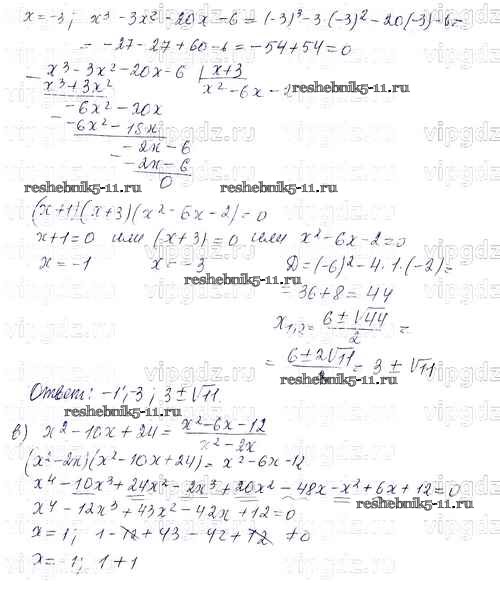 x=-3; x³-3x²-20x-6=(-3)³-3·(-3)²-20(-3)-6=
=-27-27+60-6=-54+54=0
x³-3x²-20x-6 | x+3
x³+3x² x²-6x-2
reshebnik5-11.ru
-6x²-20x
-6x²-18x
-2x-6
-2x-6
0
reshebnik5-11.ru reshebnik5-11.ru
(x+1)(x+3)(x²-6x-2)=0
x+1=0 или (x+3)=0 или x²-6x-2=0
x=-1 x=-3 D=(-6)²-4·1·(-2)=
reshebnik5-11.ru
=36+8=44
x₁,₂=(6±√44)/2=
=(6±2√11)/2=3±√11
Ответ: -1;-3; 3±√11.
reshebnik5-11.ru
в) x²-10x+24=(x²-6x-12)/(x²-2x)
(x²-2x)(x²-10x+24)=x²-6x-12
x⁴-10x³+24x²-2x³+20x²-48x-x²+6x+12=0
x⁴-12x³+43x²-42x+12=0
reshebnik5-11.ru
x=1; 1-12+43-42+12≠0
x=1; 1+1
vipgdz.ru